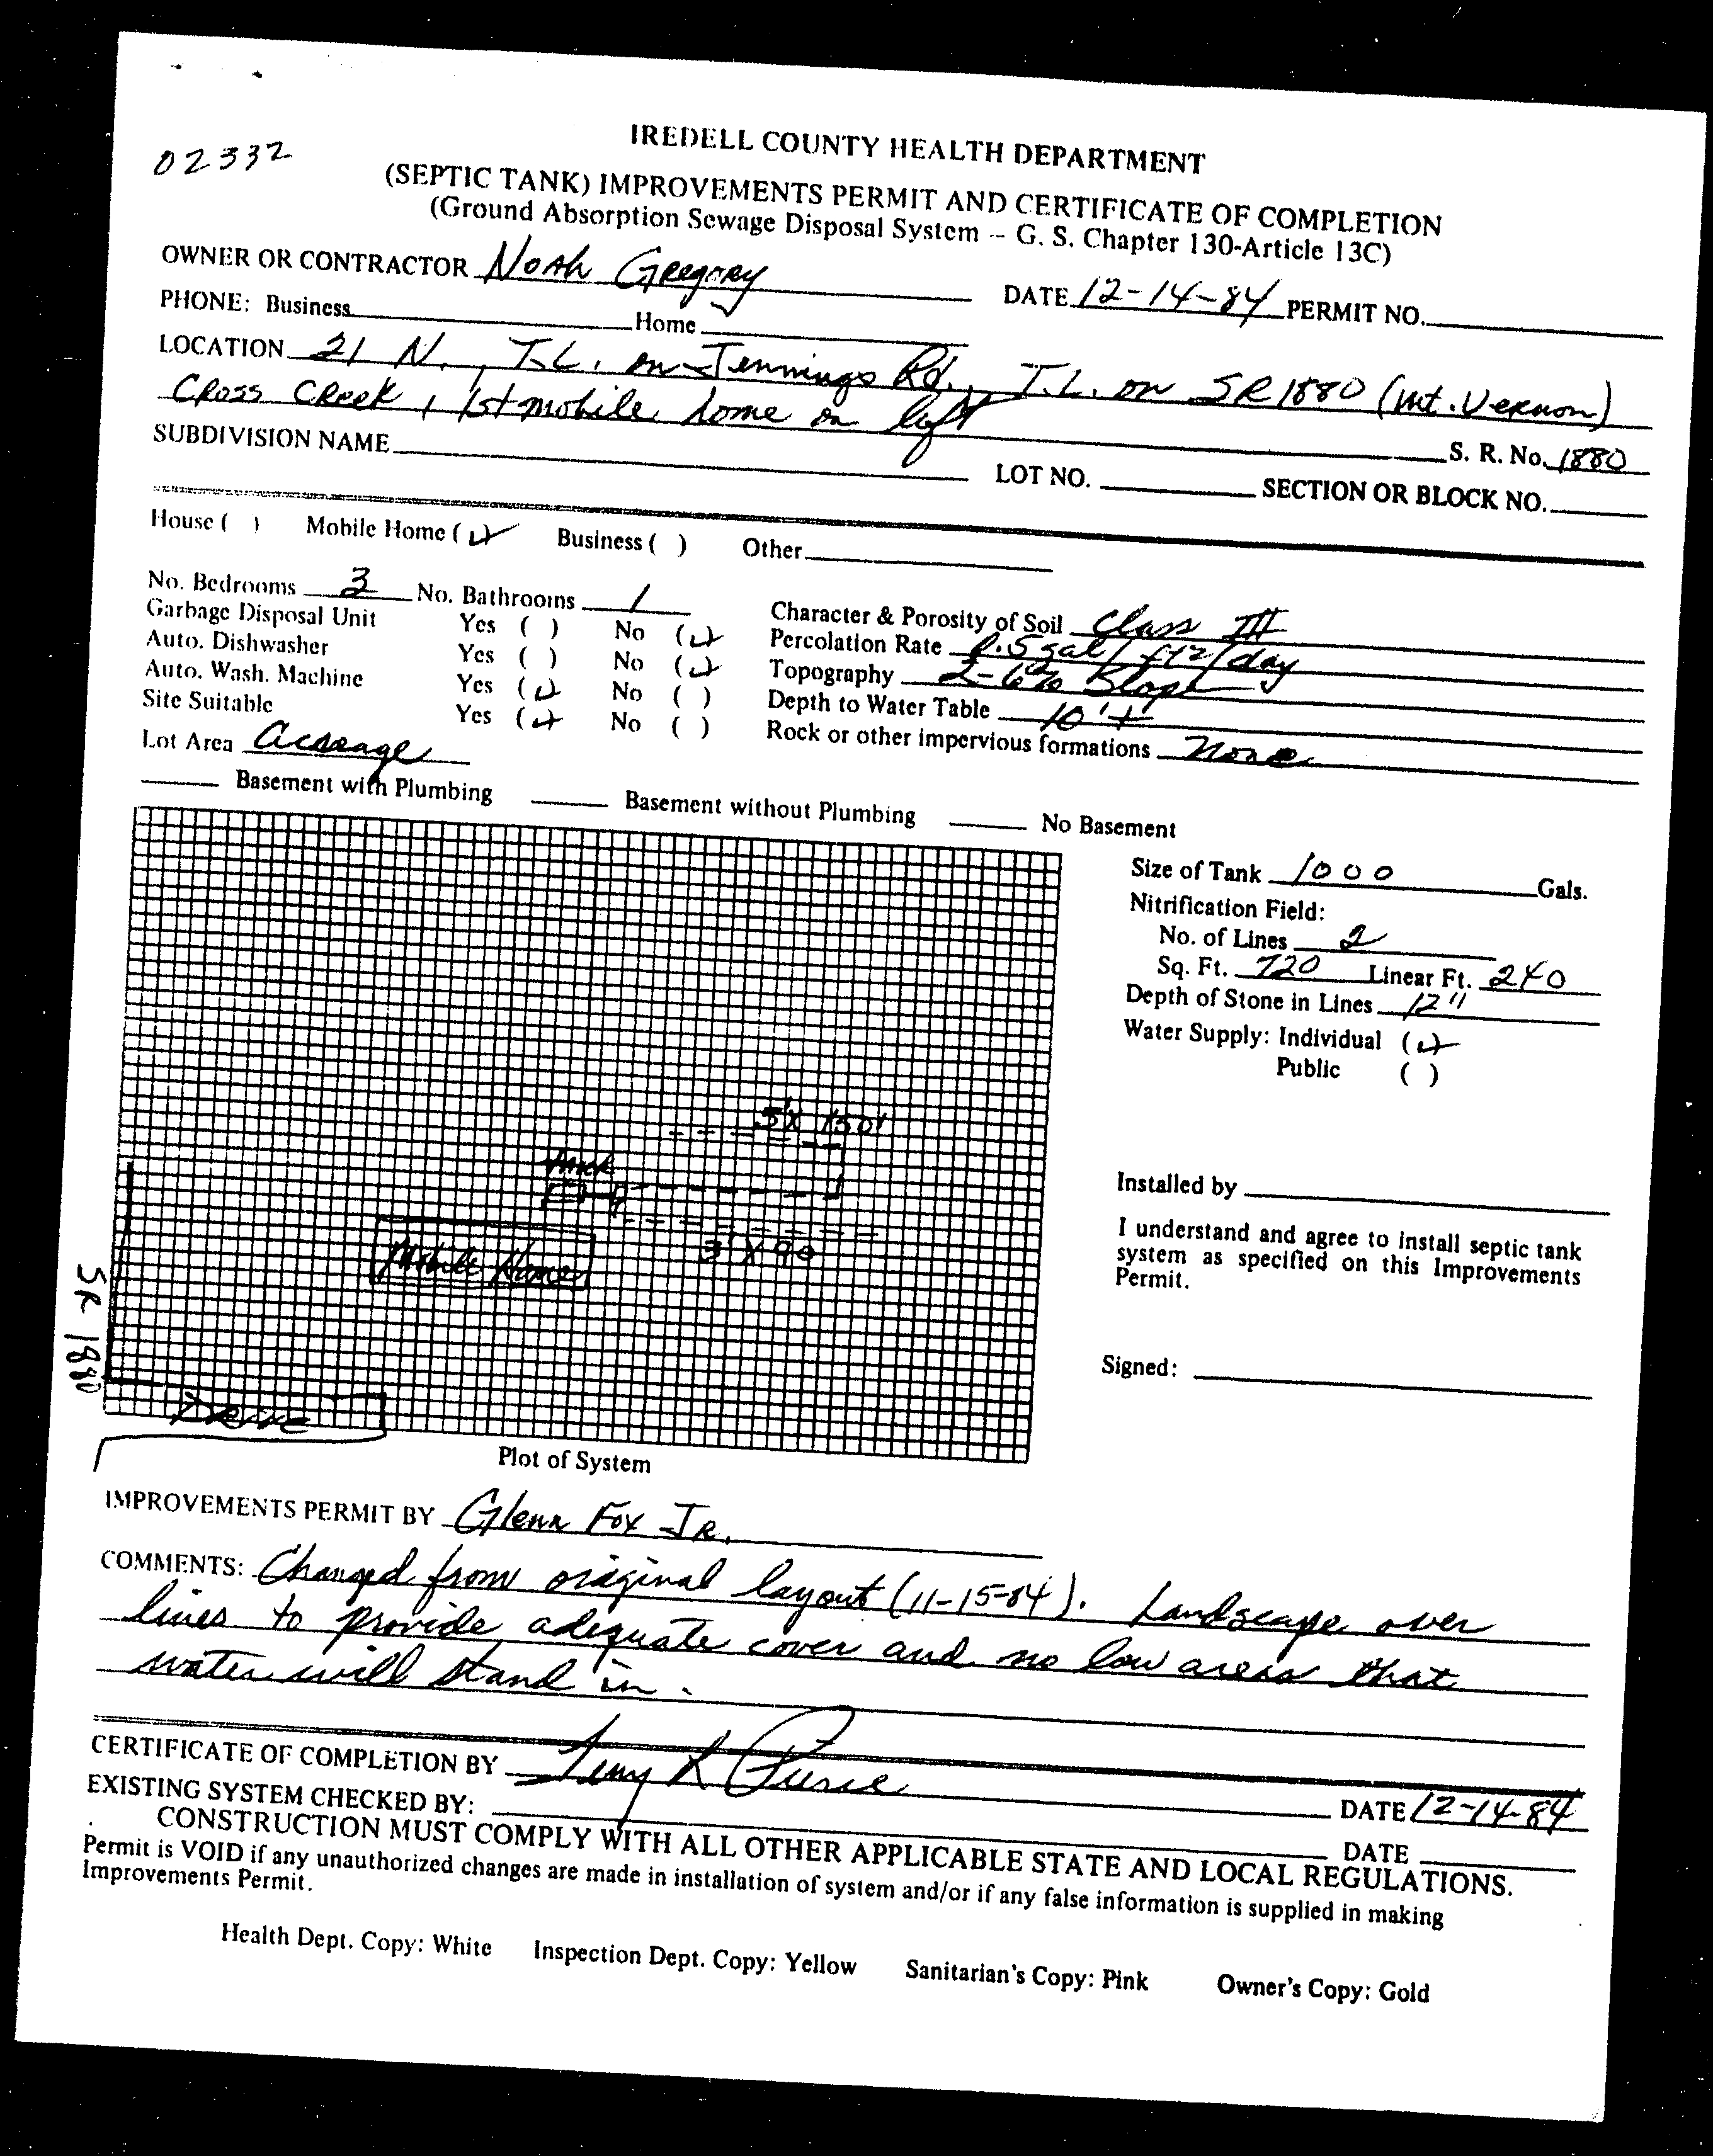 02332
IREDELL COUNTY HEALTH DEPARTMENT
(SEPTIC TANK) IMPROVEMENTS PERMIT AND CERTIFICATE OF COMPLETION
(Ground Absorption Sewage Disposal System -- G. S. Chapter 130-Article 13C)
OWNER OR CONTRACTOR Noah Gregory DATE 12-14-84 PERMIT NO.
PHONE: Business Home
LOCATION 21 N., T.L. on Jennings Rd., T.L. on SR 1880 (Mt. Vernon)
Cross Creek, 1st mobile home on left
S. R. No. 1880
SUBDIVISION NAME LOT NO. SECTION OR BLOCK NO.
House ( ) Mobile Home (✓) Business ( ) Other
No. Bedrooms 3 No. Bathrooms 1 Character & Porosity of Soil Class III
Garbage Disposal Unit Yes ( ) No (✓) Percolation Rate .5 gal/ft2/day
Auto. Dishwasher Yes ( ) No (✓) Topography 2-6% Slope
Auto. Wash. Machine Yes (✓) No ( ) Depth to Water Table 10'+
Site Suitable Yes (✓) No ( ) Rock or other impervious formations None
Lot Area acreage
Basement with Plumbing Basement without Plumbing No Basement
Size of Tank 1000 Gals.
Nitrification Field:
No. of Lines 2
Sq. Ft. 720 Linear Ft. 240
Depth of Stone in Lines 12"
Water Supply: Individual (✓)
Public ( )
3'X 150'
tank
3'X 90
Mobile Home
SR 1880
Drive
Installed by
I understand and agree to install septic tank
system as specified on this Improvements
Permit.
Signed:
Plot of System
IMPROVEMENTS PERMIT BY Glenn Fox Jr.
COMMENTS: Changed from original layout (11-15-84). Landscape over
lines to provide adequate cover and no low areas that
water will stand in.
CERTIFICATE OF COMPLETION BY K Pierce DATE 12-14-84
EXISTING SYSTEM CHECKED BY: DATE
CONSTRUCTION MUST COMPLY WITH ALL OTHER APPLICABLE STATE AND LOCAL REGULATIONS.
Permit is VOID if any unauthorized changes are made in installation of system and/or if any false information is supplied in making
Improvements Permit.
Health Dept. Copy: White Inspection Dept. Copy: Yellow Sanitarian's Copy: Pink Owner's Copy: Gold